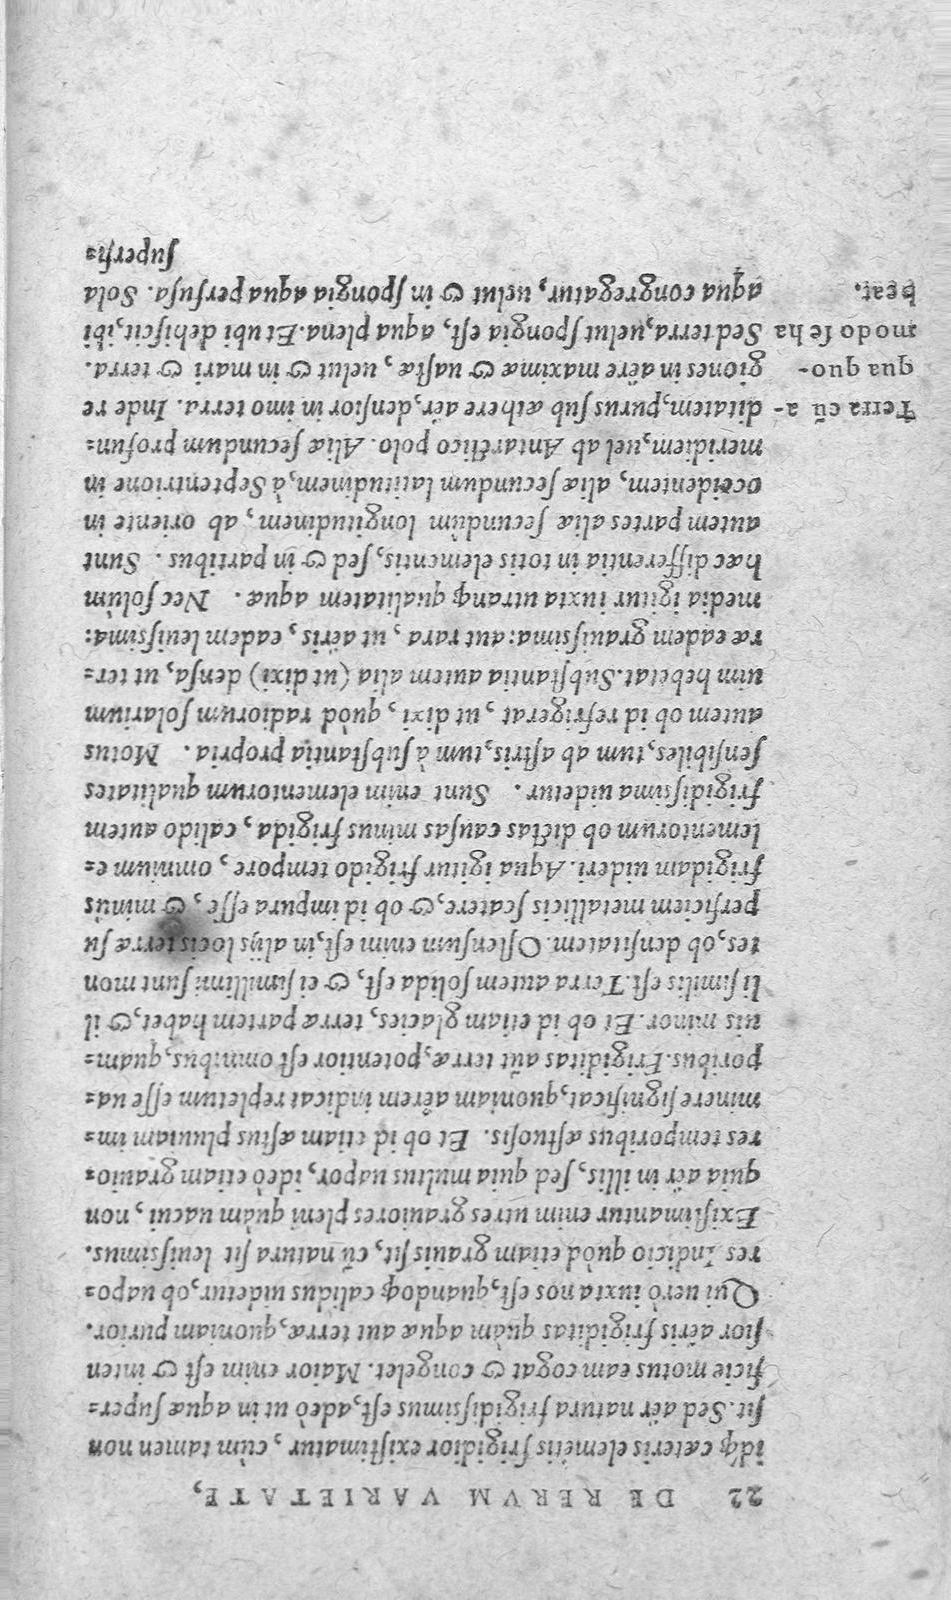 22 DE RERVM VARIETATE,
idq́ cæteris elemẽtis frigidior existimatur, cùm tamen non
sit. Sed aër natura frigidissimus est, adeò ut in aquæ super-
ficie motus eam cogat & congelet. Maior enim est & inten
sior aëris frigiditas quàm aquæ aut terræ, quoniam purior.
Qui uerò iuxta nos est, quandoq; calidus uidetur, ob uapo-
res Indicio quòd etiam grauis sit, cũ natura sit leuissimus.
Existimantur enim utres grauiores pleni quàm uacui, non
quia aër in illis, sed quia multus uapor, ideò etiam grauio-
res temporibus æstuosis. Et ob id etiam æstus pluuiam im-
minere significat, quoniam aërem indicat repletum esse ua-
poribus. Frigiditas aũt terræ, potentior est omnibus, quam-
uis minor. Et ob id etiam glacies, terræ partem habet, & il
li similis est. Terra autem solida est, & ei simillimi sunt mon
tes, ob densitatem. Ostensum enim est, in alijs locis terræ su
perficiem metallicis scatere, & ob id impura esse, & minùs
frigidam uideri. Aqua igitur frigido tempore, omnium e-
lementorum ob dictas causas minus frigida, calido autem
frigidissima uidetur. Sunt enim elementorum qualitates
sensibiles, tum ab astris, tum à substantia propria. Motus
autem ob id refrigerat, ut dixi, quòd radiorum solarium
uim hebetat. Substantia autem alia (ut dixi) densa, ut ter-
ræ eadem grauissima: aut rara, ut aëris, eadem leuissima:
media igitur iuxta utranq; qualitatem aquæ. Nec solùm
hæc differentia in totis elementis, sed & in partibus. Sunt
autem partes aliæ secundùm longitudinem, ab oriente in
occidentem, aliæ secundum latitudinem, à Septentrione in
meridiem, uel ab Antarctico polo. Aliæ secundum profun-
Terra cũ a- ditatem, purus sub æthere aër, densior in imo terra. Inde re
qua quo- giones in aëre maximæ & uastæ, uelut & in mari & terra.
modo se ha Sed terra, uelut spongia est, aqua plena. Et ubi dehiscit, ibi
beat. aqua congregatur, uelut & in spongia aqua perfusa. Sola
superfi-